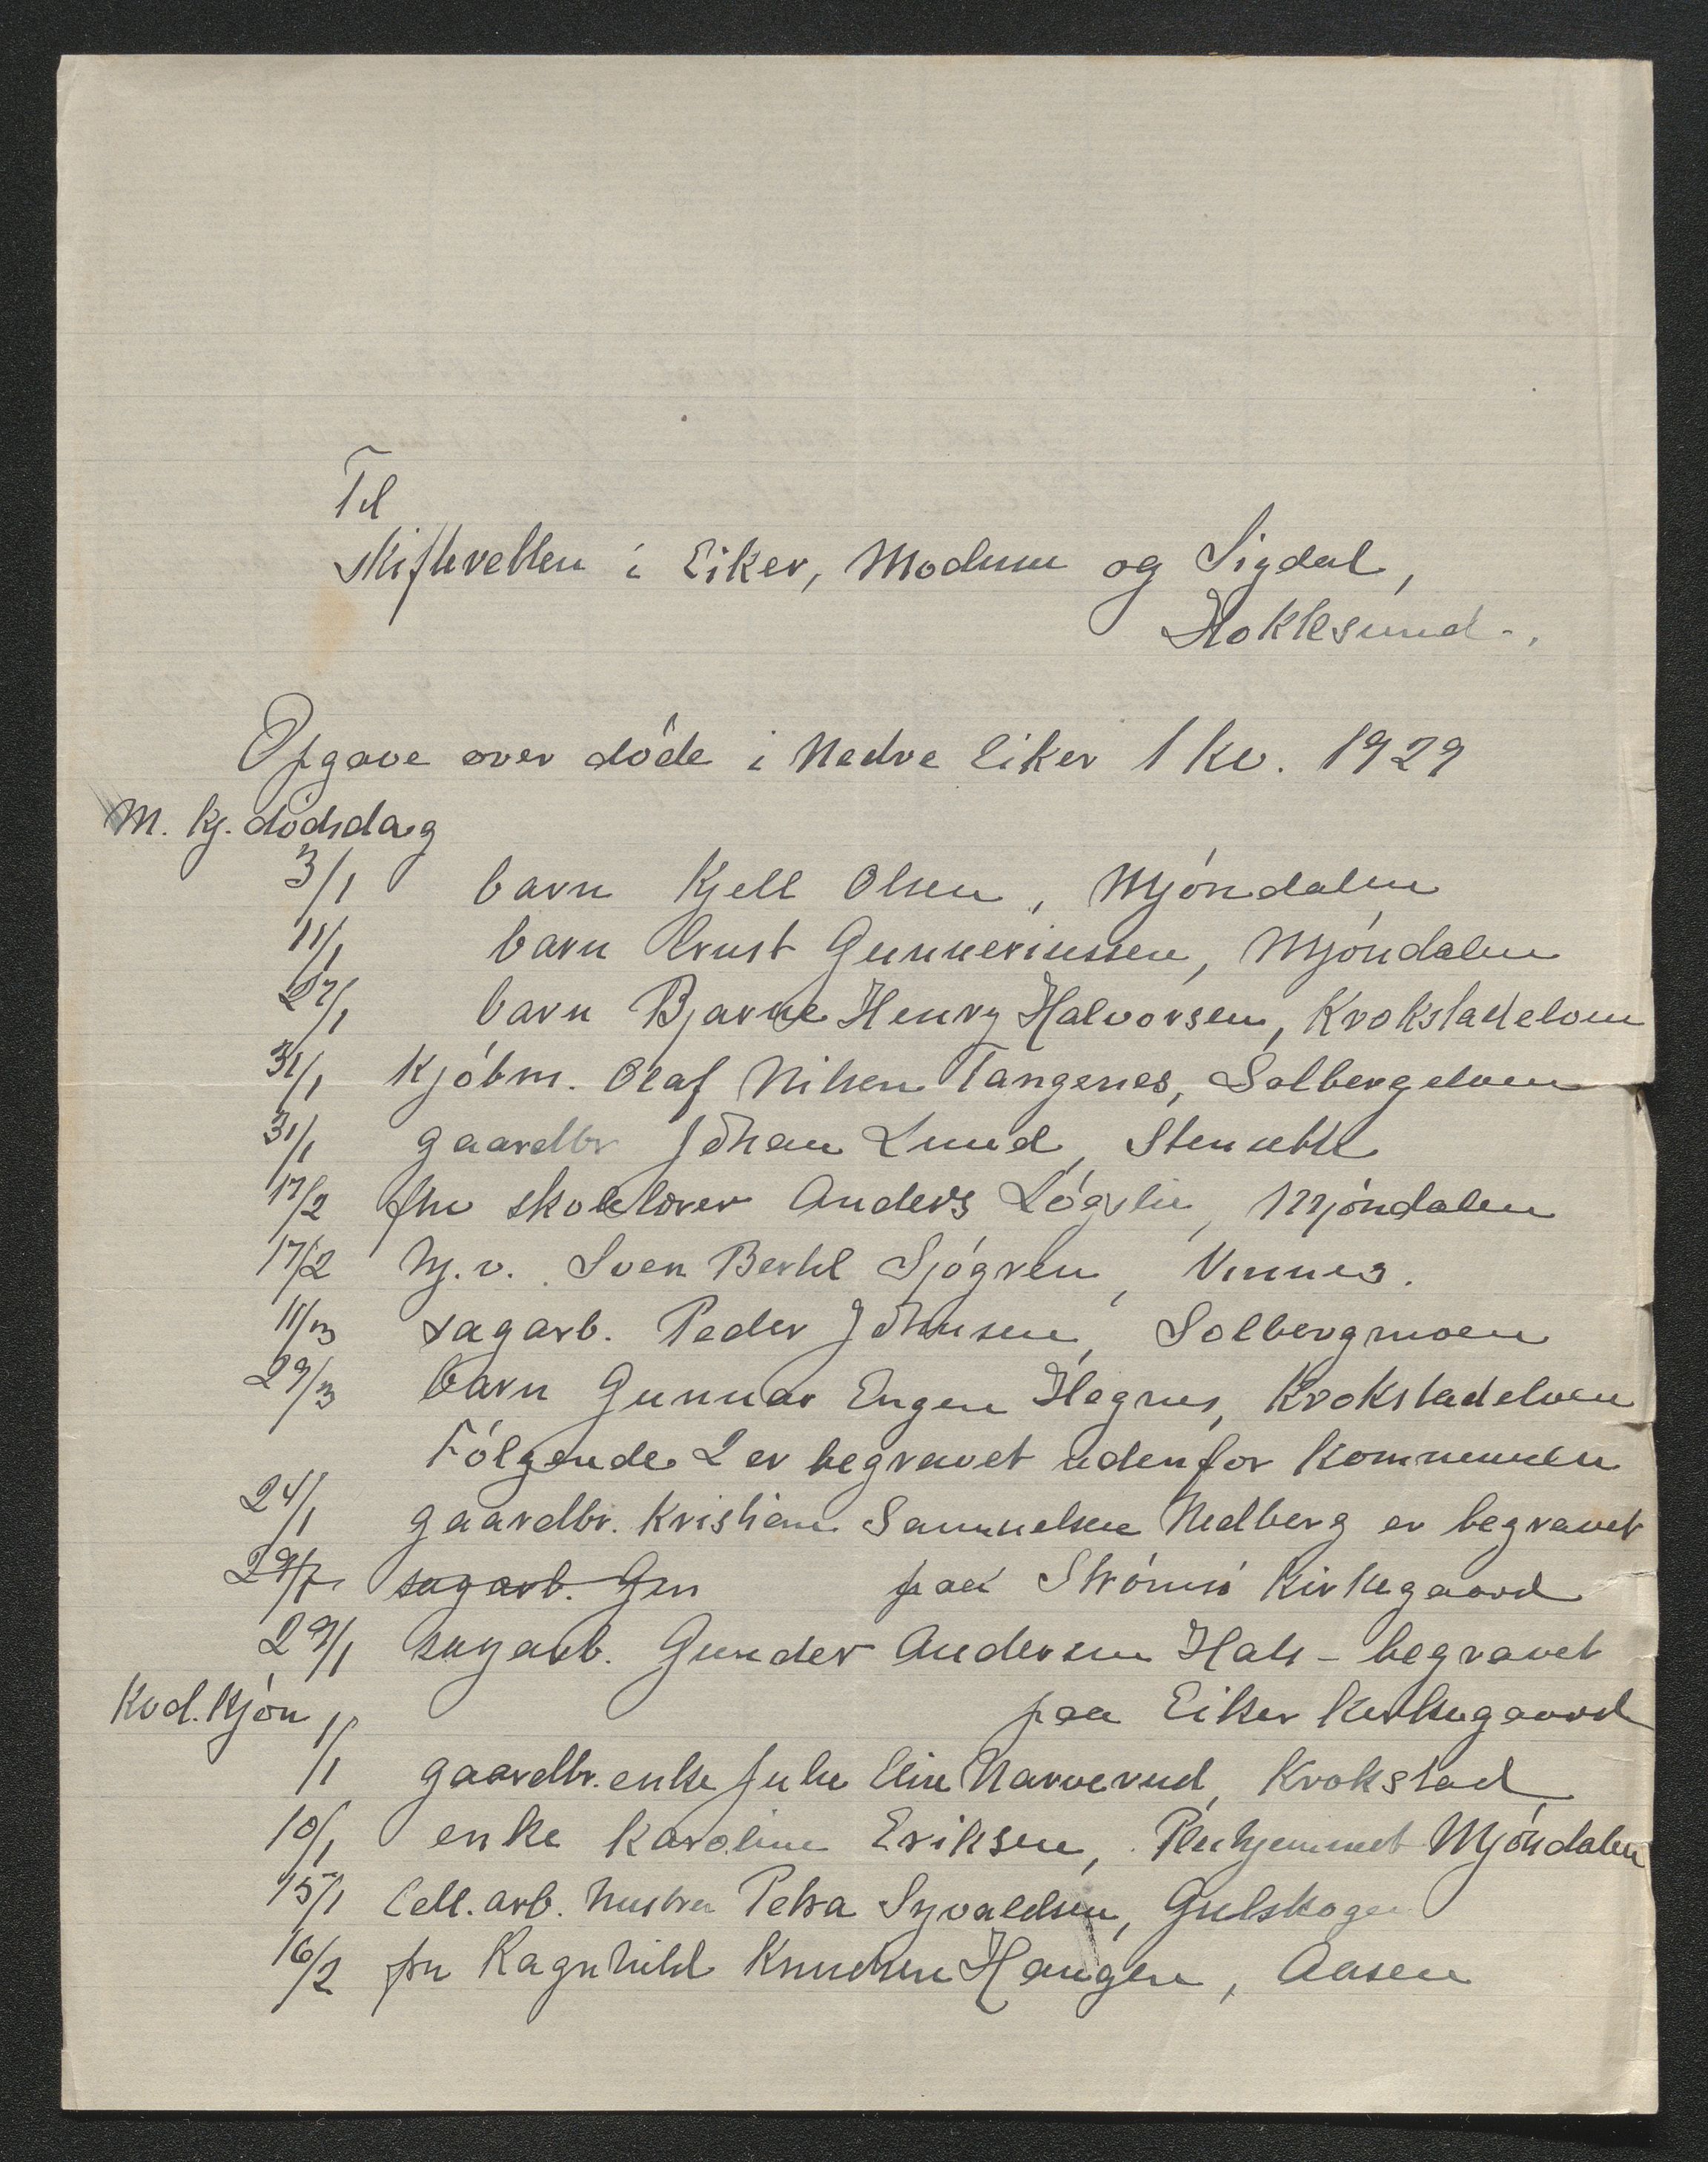 Til
Skifteretten i Eiker, Modum og Sigdal,
Hokksund.
Opgave over döde i Nedre Eiker 1 kv. 1929
M. kj. dödsdag
3/1 barn Kjell Olsen, Mjöndalen
11/1 barn Ernst Gunneriussen, Mjöndalen
27/1 barn Bjarne Henry Halvorsen, Krokstadelven
31/1 Kjöbm. Olaf Nilsen Tangenes, Solbergelven
31/1 gaardbr Johan Lund, Stensett
17/2 fhv skolelærer Anders Lögvlie, Mjöndalen
17/2 hj.v. Sven Bertil Sjögren, Vinnes.
11/3 sagarb. Peder Johnsen, Solbergmoen
29/3 barn Gunnar Engen Hegnes, Krokstadelven
Fölgende 2 er begravet udenfor kommunen
24/1 gaardbr. Kristian Samuelsen Nedberg er begravet
29/1 sagarb. Gun paa Strömsö Kirkegaard
29/1 sagarb. Gunder Andersen Hals - begravet
Kvd. kjön paa Eiker Kirkegaard
1/1 gaardbr. enke Julie Elise Narverud, Krokstad
10/1 enke Karoline Eriksen, Pleihjemmet Mjöndalen
15/1 Cell. arb. hustru Petra Syvaldsen, Gulskogen
16/2 fru Ragnhild Knudsen Haugen, Aasen